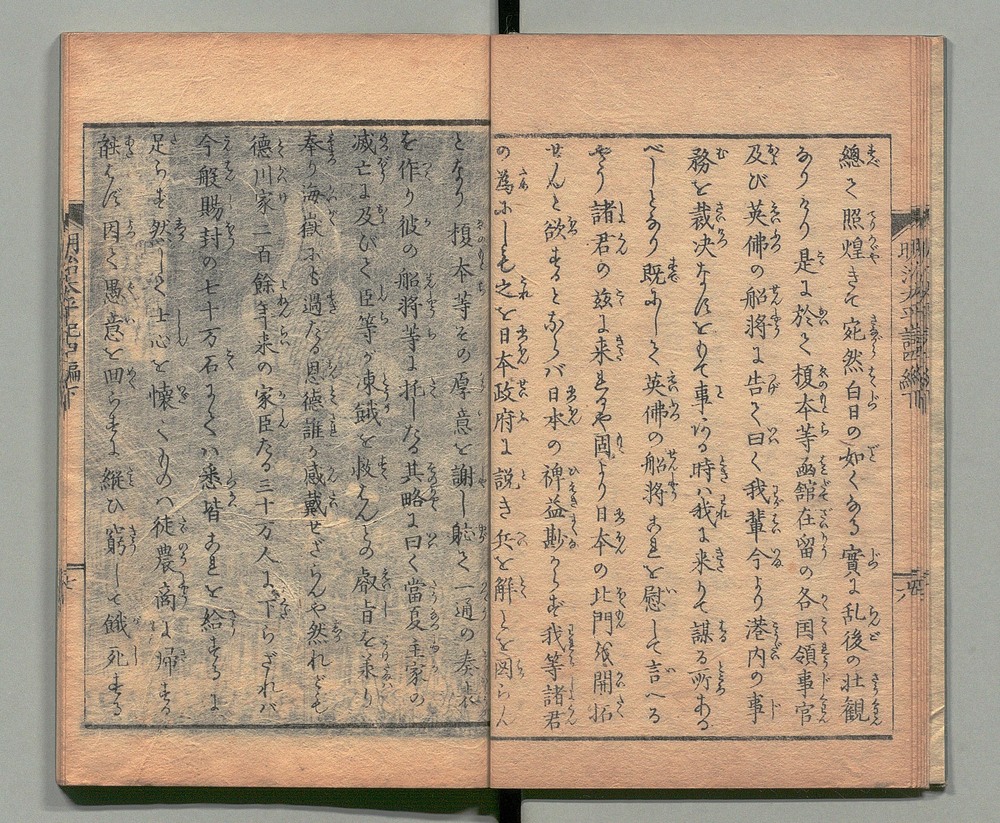 總て照煌きて宛然白日の如くなる實に乱後の壮観
なりけり是に於て榎本等函館在留の各国領事官
及び英佛の船將に告て曰く我輩今より港内の事
務を裁决なすをもて事ある時ハ我に来りて謀る所ある
べしとなり既にして英佛の船将これを慰して言へる
やう諸君の茲に来れるや固より日本の北門を開拓
せんと欲するとならバ日本の裨益尠からず我等諸君
の為にしも之を日本政府に説き兵を解ことを図らん
となり榎本等その厚意を謝し
て一通の奏表
を作り彼の船将等に托したる其略に曰く當夏主家の
滅亡に及びて臣等が凍餓を救はんとの
旨を承り
奉り海嶽にも過たる恩徳誰か感戴せざらんや然れども
徳川家二百餘年来の家臣たる三十万人に下らざれバ
今般賜封の七十万石にてハ悉皆これを給するに
足らず然して士心を懐くものハ徒農商に帰する
能はず因て愚意を回らすに縦ひ窮して餓死する
明治太平記
明治太平記
編下